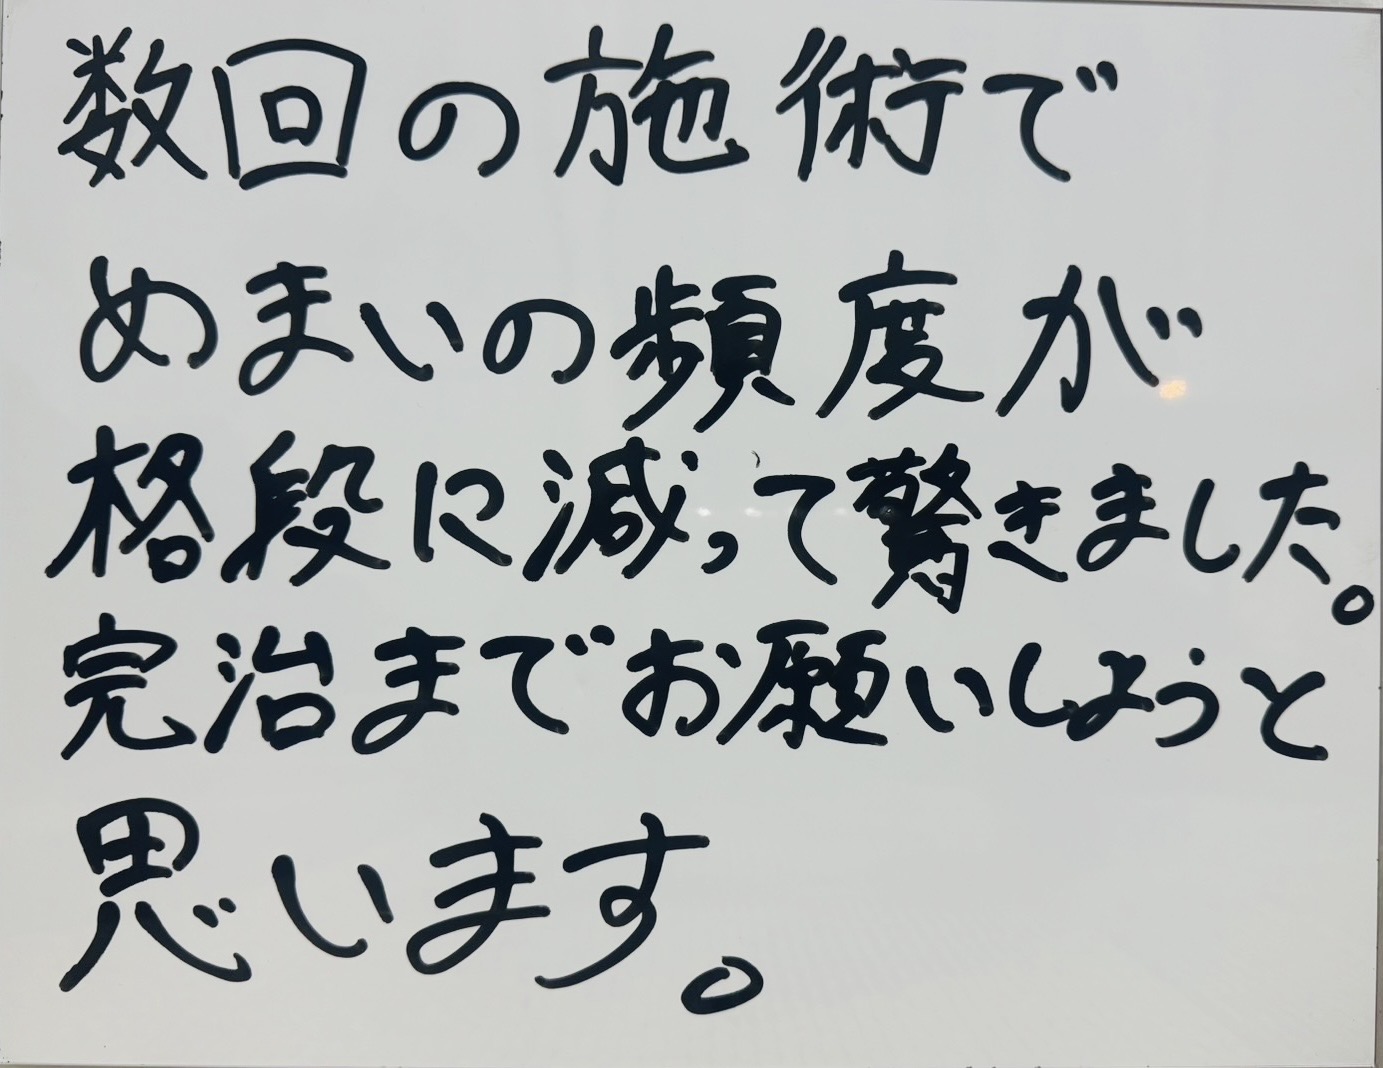 数回の施術で
めまいの頻度が
格段に減って驚きました。
完治までお願いしようと
思います。